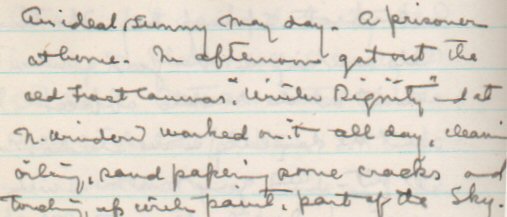 An ideal sunny May day. A prisoner
at home. In afternoon got out the
old canvas "Winter Dignity" and at
N. window worked on it all day, cleaning
oiling, sandpapering some cracks and
touching up with paint, part of the Sky.